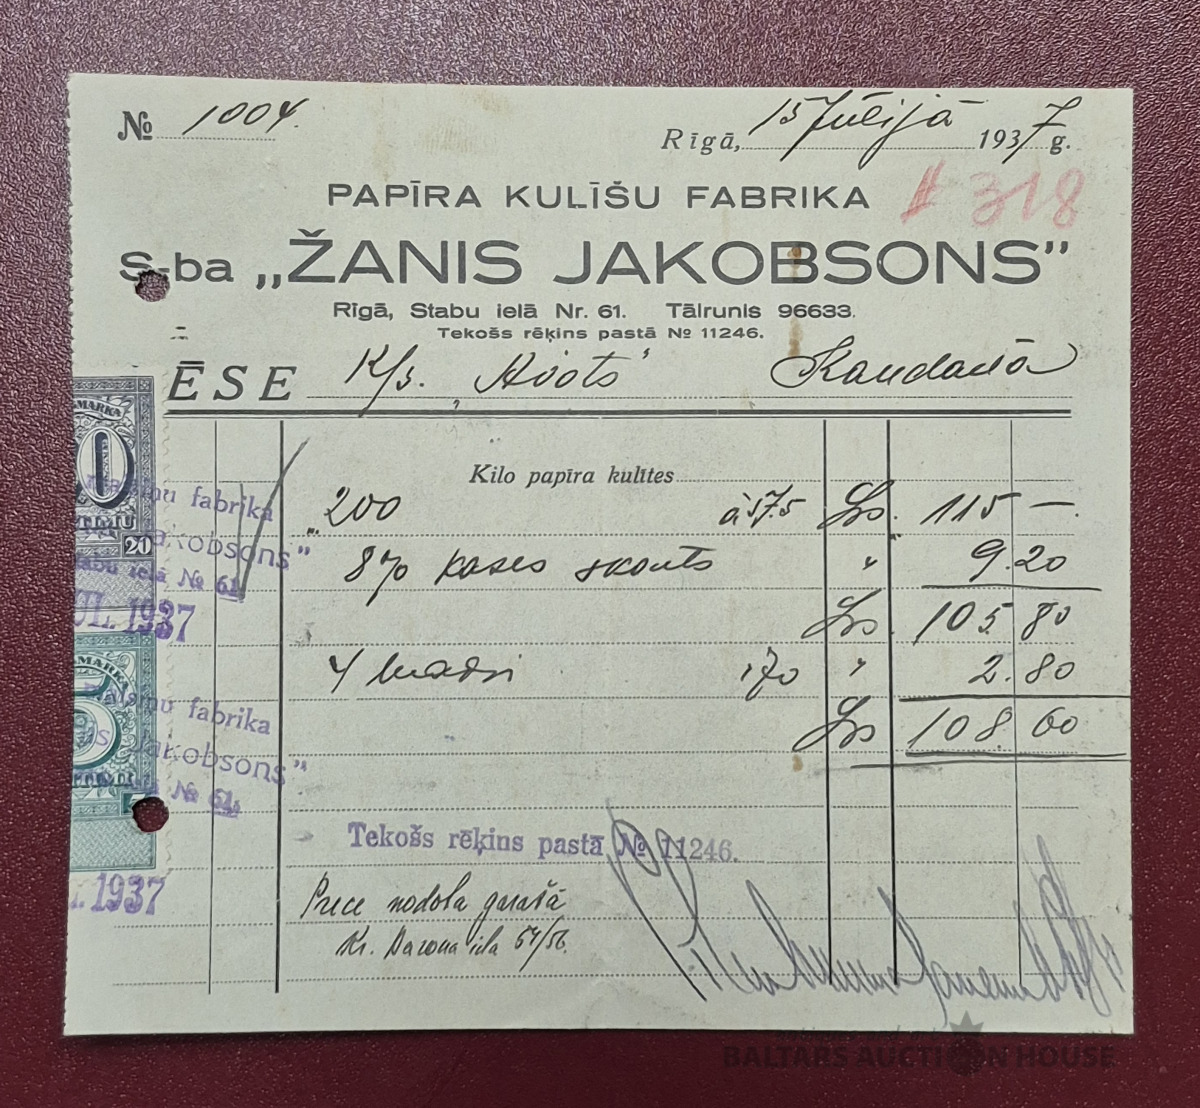 № 1004.
Rīgā, 15 Jūlijā 1937 g.
# 318
PAPĪRA KULĪŠU FABRIKA
S-ba „ŽANIS JAKOBSONS”
Rīgā, Stabu ielā Nr. 61. Tālrunis 96633.
Tekošs rēķins pastā № 11246.
ĒSE K/s. „Avots” Kandavā
Kilo papīra kulītes
200 à 57.5 Ls. 115 —
8% kases skonto " 9.20
Ls 105 80
4 170 " 2.80
Ls 108 60
MARKA
0
20
fabrika
Jakobsons”
ielā № 61.
JUL. 1937
MARKA
5
fabrika
Jakobsons”
№ 61.
1937
Tekošs rēķins pastā № 11246.
Prece nodota garažā
Kr. Barona ielā 54/56.
BALTARS AUCTION HOUSE